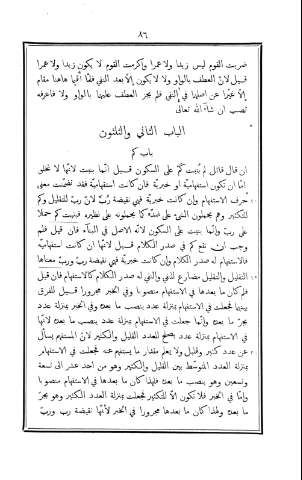 ٨٦
ضربت القوم ليس زيدا ولا عمرا واكرمت القوم لا يكون زيدا ولا عمرا
قيل لانّ العطف بالواو ولا لا يكون الّا بعد النفي فلمّا اقيما هاهنا مقام
الّا غيّرا عن اصلهما في النفي فلم يجز العطف عليهما بالواو ولا فاعرفه
تصب ان شآء اللّه تعالى
الباب الثاني والثلثون
باب كم
ان قال قائل لم بُنيت كم على السكون قيل انّما بنيت لانّها لا تخلو
امّا ان تكون استفهاميّة او خبريّة فان كانت استفهاميّة فقد تضمّنت معنى
حرف الاستفهام وان كانت خبريّة فهي نقيضة رُبّ لانّ ربّ للتقليل وكم
للتكثير وهم يحملون الشيء على ضدّه كما يحملونه على نظيره فبنيت كم حملا
على ربّ وانّما بنيت على السكون لانّه الاصل في البنآء فان قيل فلم
وجب ان تقع كم في صدر الكلام قيل لانّها ان كانت استفهاميّة
فالاستفهام له صدر الكلام وان كانت خبريّة فهي نقيضة ربّ وربّ معناها
١٠ التقليل والتقليل مضارع للنفي والنفي له صدر الكلام كالاستفهام فان قيل
فلم كان ما بعدها في الاستفهام منصوبا وفي الخبر مجرورا قيل للفرق
بينهما فجعلت في الاستفهام بمنزلة عدد ينصب ما بعده وفي الخبر بمنزلة عدد
يجرّ ما بعده وانّما جعلت في الاستفهام بمنزلة عدد ينصب ما بعده لانّها
في الاستفهام بمنزلة عدد يصلح للعدد القليل والكثير لانّ المستفهم يسأل
عن عدد كثير وقليل ولا يعلم مقدار ما يستفهم عنه فجعلت في الاستفهام
بمنزلة العدد المتوسّط بين القليل والكثير وهو من احد عشر الى تسعة
وتسعين وهو ينصب ما بعده فلهذا كان ما بعدها في الاستفهام منصوبا
وامّا في الخبر فلا تكون الّا للتكثير فجعلت بمنزلة العدد الكثير وهو يجرّ
ما بعده ولهذا كان ما بعدها مجرورا في الخبر لأنّها نقيضة ربّ وربّ